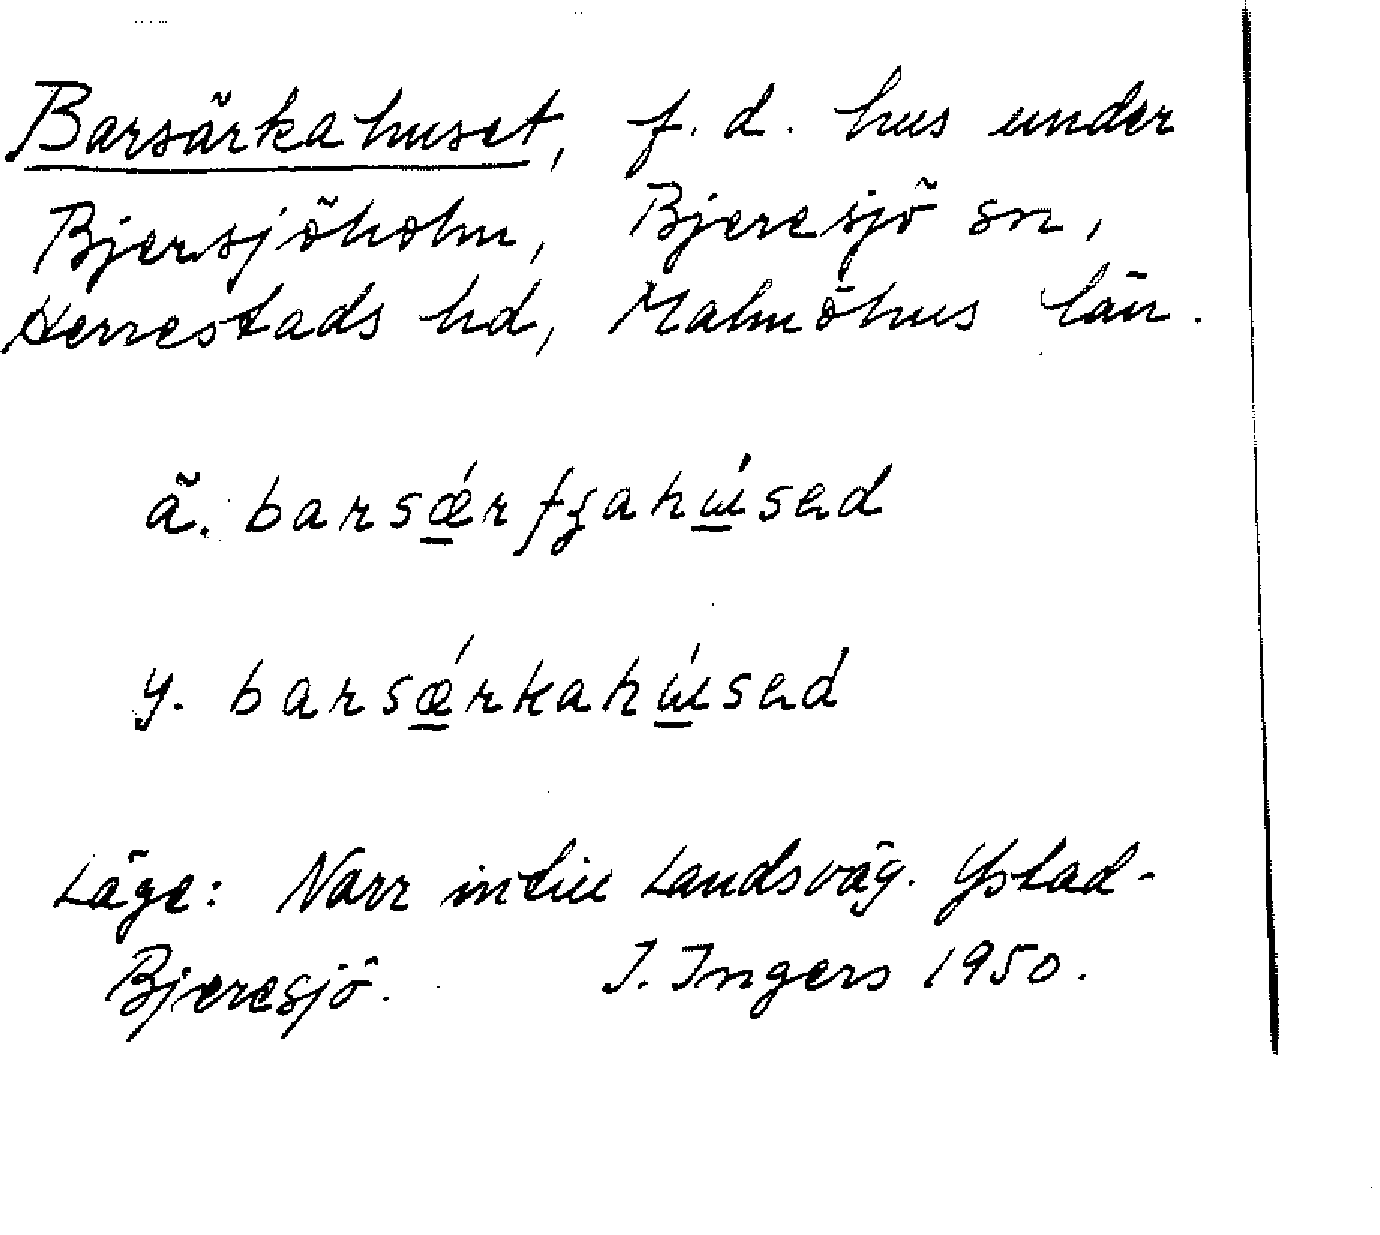 Barsärkahuset, f.d. hus under
Bjersjöholm, Bjeresjö sn,
Herrestads hd, Malmöhus län.
ä.
y. barsǿrkahúsad
Läge: Norr intill Landsväg. Ystad-
Bjeresjö. I. Ingers 1950.